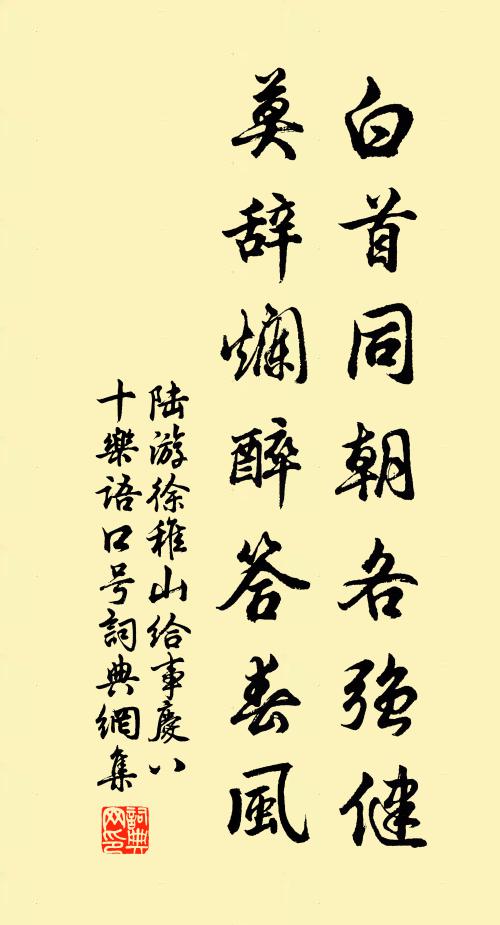 白首同朝各強健
莫辞爛醉答春風
陆游徐稚山给事慶八
十樂语口号詞典網集
詞典网印